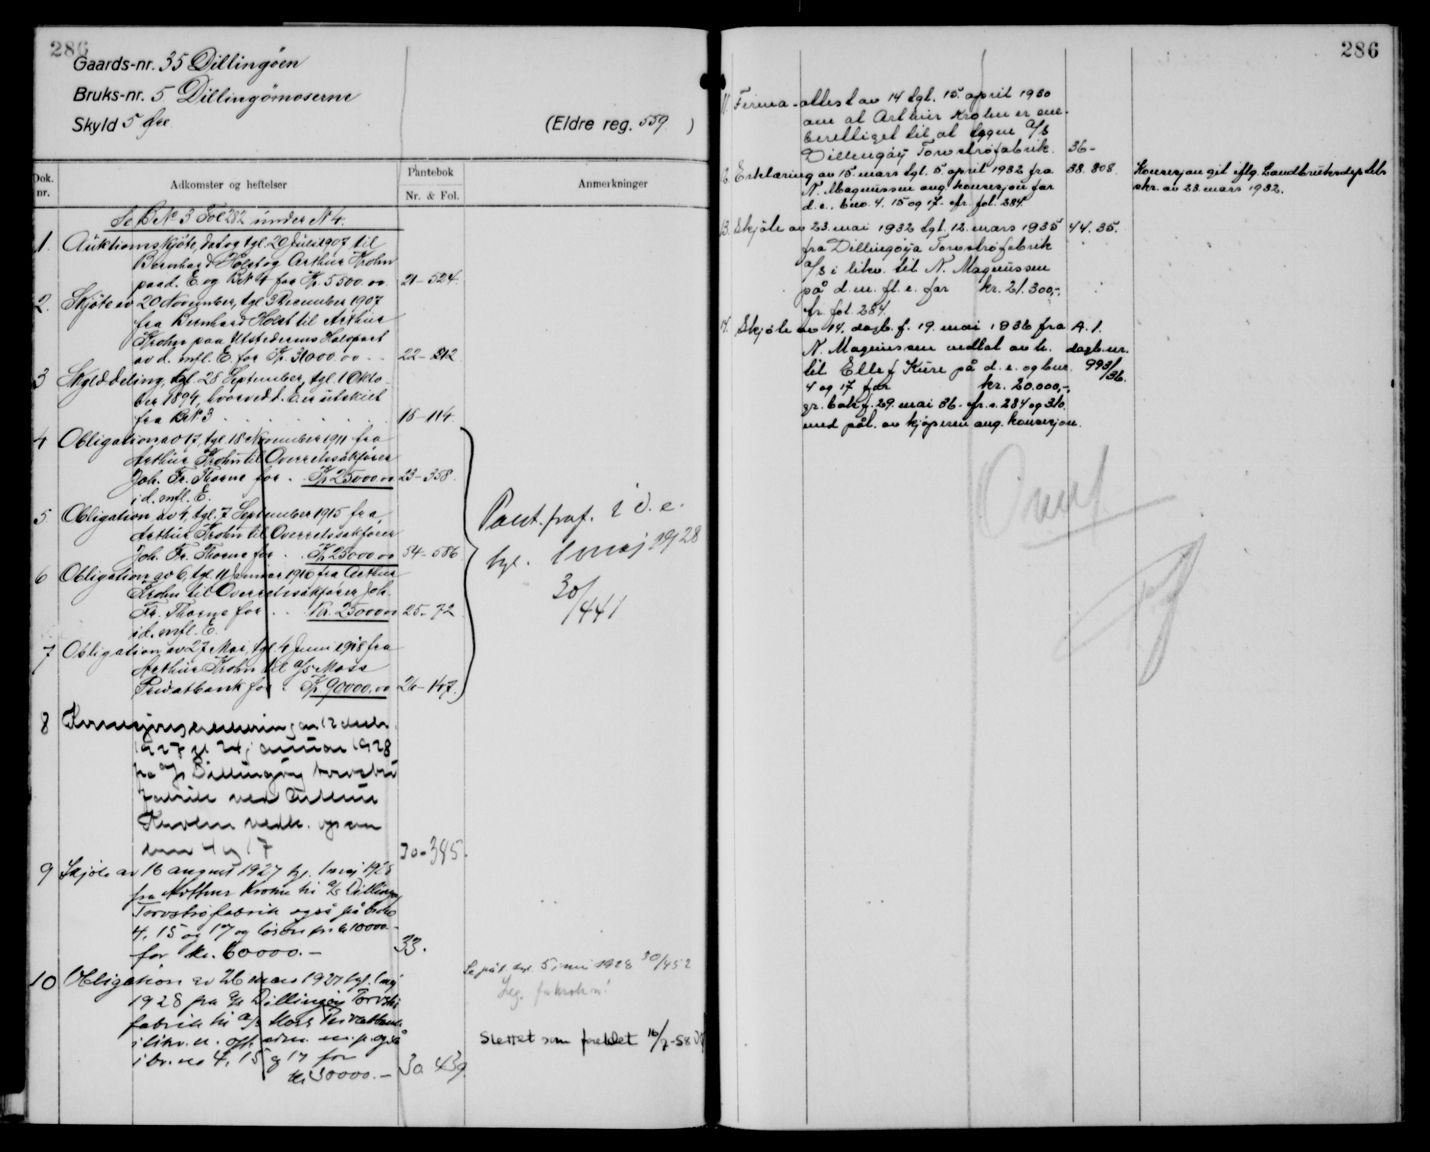 286
Gaards-nr. 35 Dillingöen
Bruks-nr. 5 Dillingömoserne
Skyld 5 Øre
(Eldre reg. 559 )
Dok. nr.
Adkomster og heftelser
Pantebok
Nr. & Fol.
Anmerkninger
Se BrNo 3 Fol 282 under No 4.
1. Auktionsskjöte, dat og tgl. 20 Juli 1907 til
Bernhard Holst og Arthur Krohn
paa d. E. og BrN 4 for Kr. 5500.00 21-524.
2. Skjöte av 20 November, tgl 3 December 1907
fra Bernhard Holst til Arthur
Krohn paa Utstederens Halvpart
av d. mfl. E. for Kr. 31000.00 22-512
3 Skylddeling, tgl. 28 September, tgl. 1 Okto-
ber 1894, hvorved d. E. er utskilt
fra BrNo 3 15-114.
4 Obligation av 17, tgl. 18 November 1911 fra
Arthur Krohn til Overretssakförer
Joh. Fr. Thorne for Kr. 25000.00 23-358.
i d. mfl. E.
5 Obligation av 4, tgl. 7 September 1915 fra
Arthur Krohn til Overretssakförer
Joh. Fr. Thorne for Kr. 25000.00 24-586
6 Obligation av 6, tgl. 11 Januar 1916 fra Arthur
Krohn til Overretssakförer Joh.
Fr. Thorne for Kr. 25000.00 25-72.
i d. mfl. E.
7 Obligation av 27 Mai, tgl. 4 Juni 1918 fra
Arthur Krohn til a/s Moss
Privatbank for Kr. 90000.00 26-147.
Pant. fraf. i d. e.
tgl. 1 maj 1928
30/441
8 Konsesjonserklæring av 12 decbr.
1927 tgl 24 januar 1928
fra a/s Dillingøy torvstrø
fabrik ved Arthur
Krohn vedk. ogsaa
bnr 4 og 17 30-385.
9 Skjöte av 16 august 1927 tgl. 1 maj 1928
fra Arthur Krohn til a/s Dillingøy
Torvströfabrik også på brno
4, 15 og 17 og løsøre for kr 10000.-
for kr. 60000.- 33.
10 Obligation av 26 mars 1927 tgl. 1 maj
1928 fra a/s Dillingøy Torvströ
fabrik til a/s Moss Privatbank
i likv. også
i br.no 4, 15 og 17 for
kr 50000.- 30 439.
Se påt. tgl. 5 juni 1928 30/452
Slettet som foreldet 16/7-58
286
11 Firma-attest av 14 tgl. 15. april 1930
om at Arthur Krohn er ene-
berettiget til at tegne a/s
Dillingøy Torvströfabrik. 36-
12. Erklæring av 15. mars tgl. 5 april 1932 fra
N. Magnussen ang. konsesjon for
d. e., bno. 4. 15 og 17. efr. fol. 284 38. 808.
Konsesjon git iflg. Landbruksdeptets
skr. av 23. mars 1932.
13. Skjöte av 23. mai 1932 tgl. 12. mars 1935 44. 35.
fra Dillingöya Torvströfabrik
a/s i likv. til N. Magnussen
på d. m. fl. e. for kr. 21.300,-.
efr. fol. 284.
14. Skjöte av 14. dagb.f. 19. mai 1936 fra A. 1.
N. Magnussen dagb.nr.
til Ellef Kure på d. e. og bnr. 993/36.
4 og 17 for kr. 20.000,-.
gr.bokf. 29. mai 36. efr. s. 284 og 310.
med påt. av kjøperen ang. konsesjon.